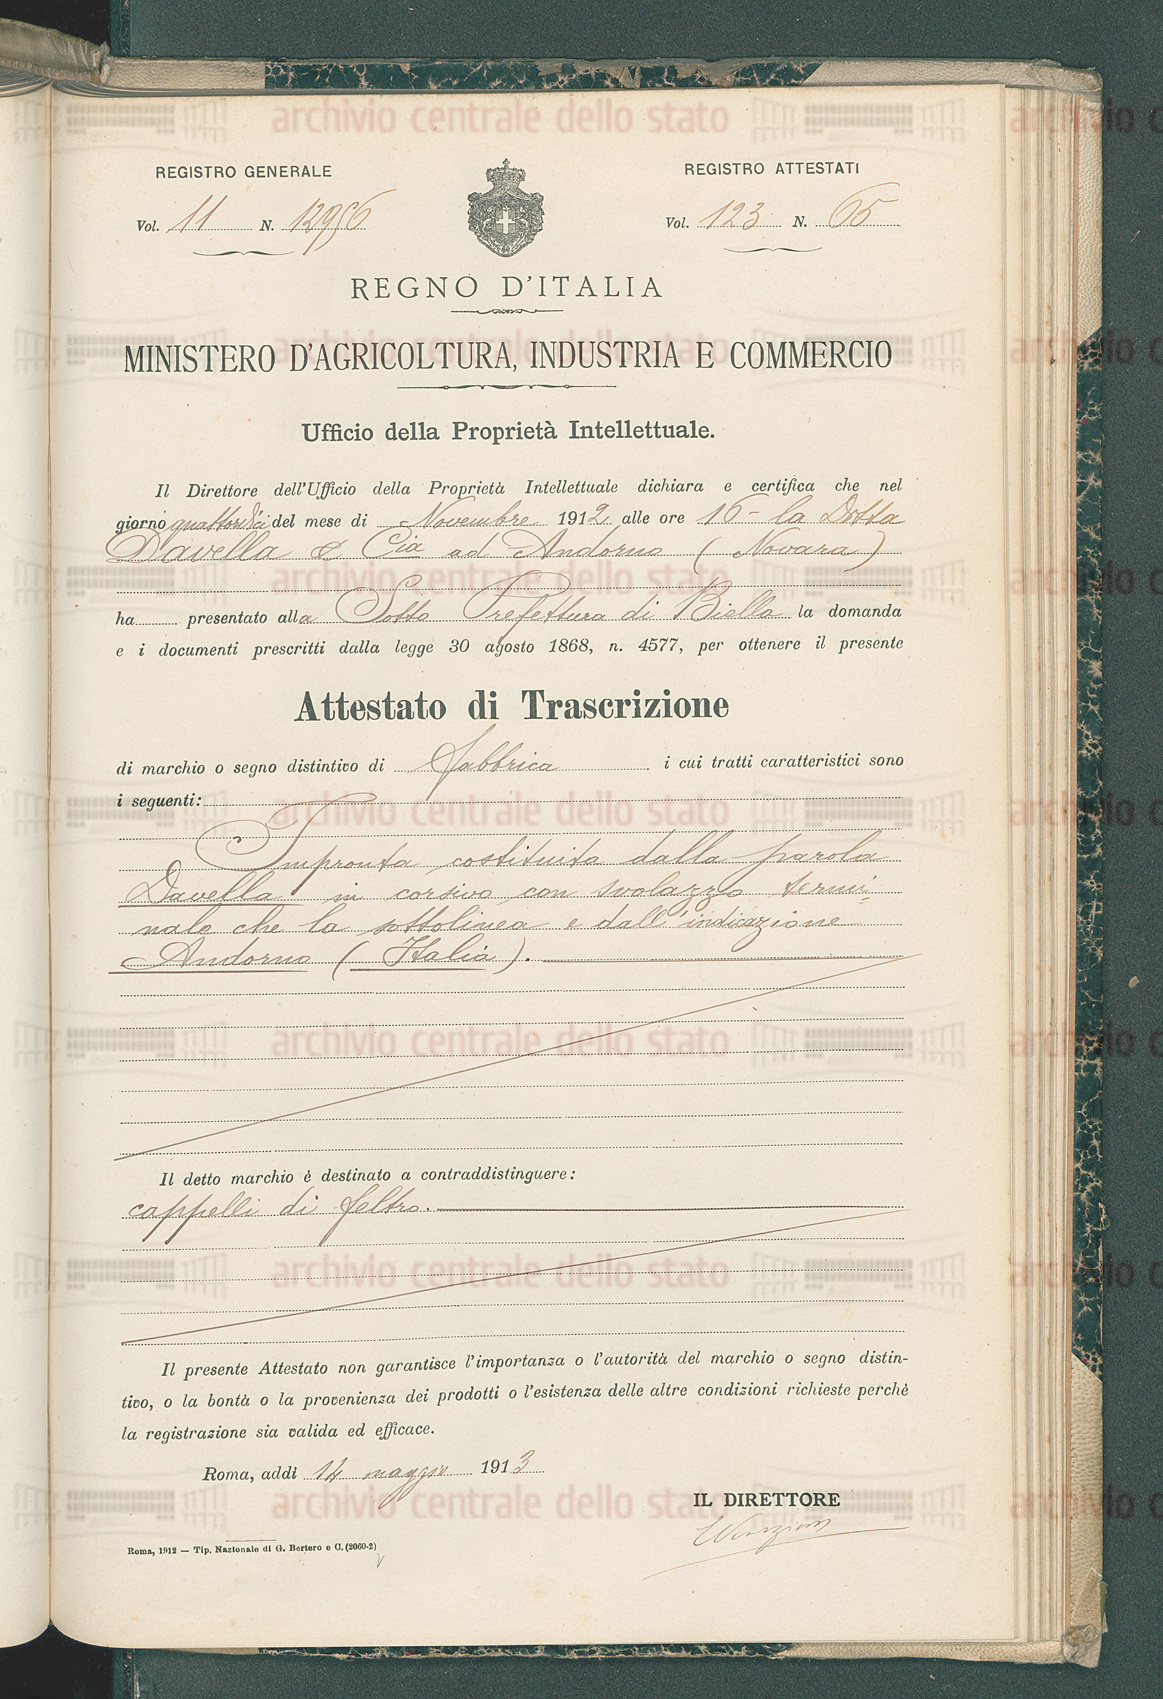 REGISTRO GENERALE
Vol. 11 N. 12956
REGISTRO ATTESTATI
Vol. 123 N. 65
REGNO D'ITALIA
MINISTERO D'AGRICOLTURA, INDUSTRIA E COMMERCIO
Ufficio della Proprietà Intellettuale.
Il Direttore dell'Ufficio della Proprietà Intellettuale dichiara e certifica che nel
giorno quattordici del mese di Novembre 1912 alle ore 16 - la Ditta
Davella & Cia ad Andorno (Novara)
ha presentato alla Sotto Prefettura di Biella la domanda
e i documenti prescritti dalla legge 30 agosto 1868, n. 4577, per ottenere il presente
Attestato di Trascrizione
di marchio o segno distintivo di fabbrica i cui tratti caratteristici sono
i seguenti:
Impronta costituita dalla parola
Davella in corsivo con svolazzo termi-
nale che la sottolinea e dall'indicazione
Andorno (Italia).
Il detto marchio è destinato a contraddistinguere:
cappelli di feltro.
Il presente Attestato non garantisce l'importanza o l'autorità del marchio o segno distin-
tivo, o la bontà o la provenienza dei prodotti o l'esistenza delle altre condizioni richieste perchè
la registrazione sia valida ed efficace.
Roma, addi 14 maggio 1913
IL DIRETTORE
Roma, 1912 — Tip. Nazionale di G. Bertero e C. (2060-2)
archivio centrale dello stato